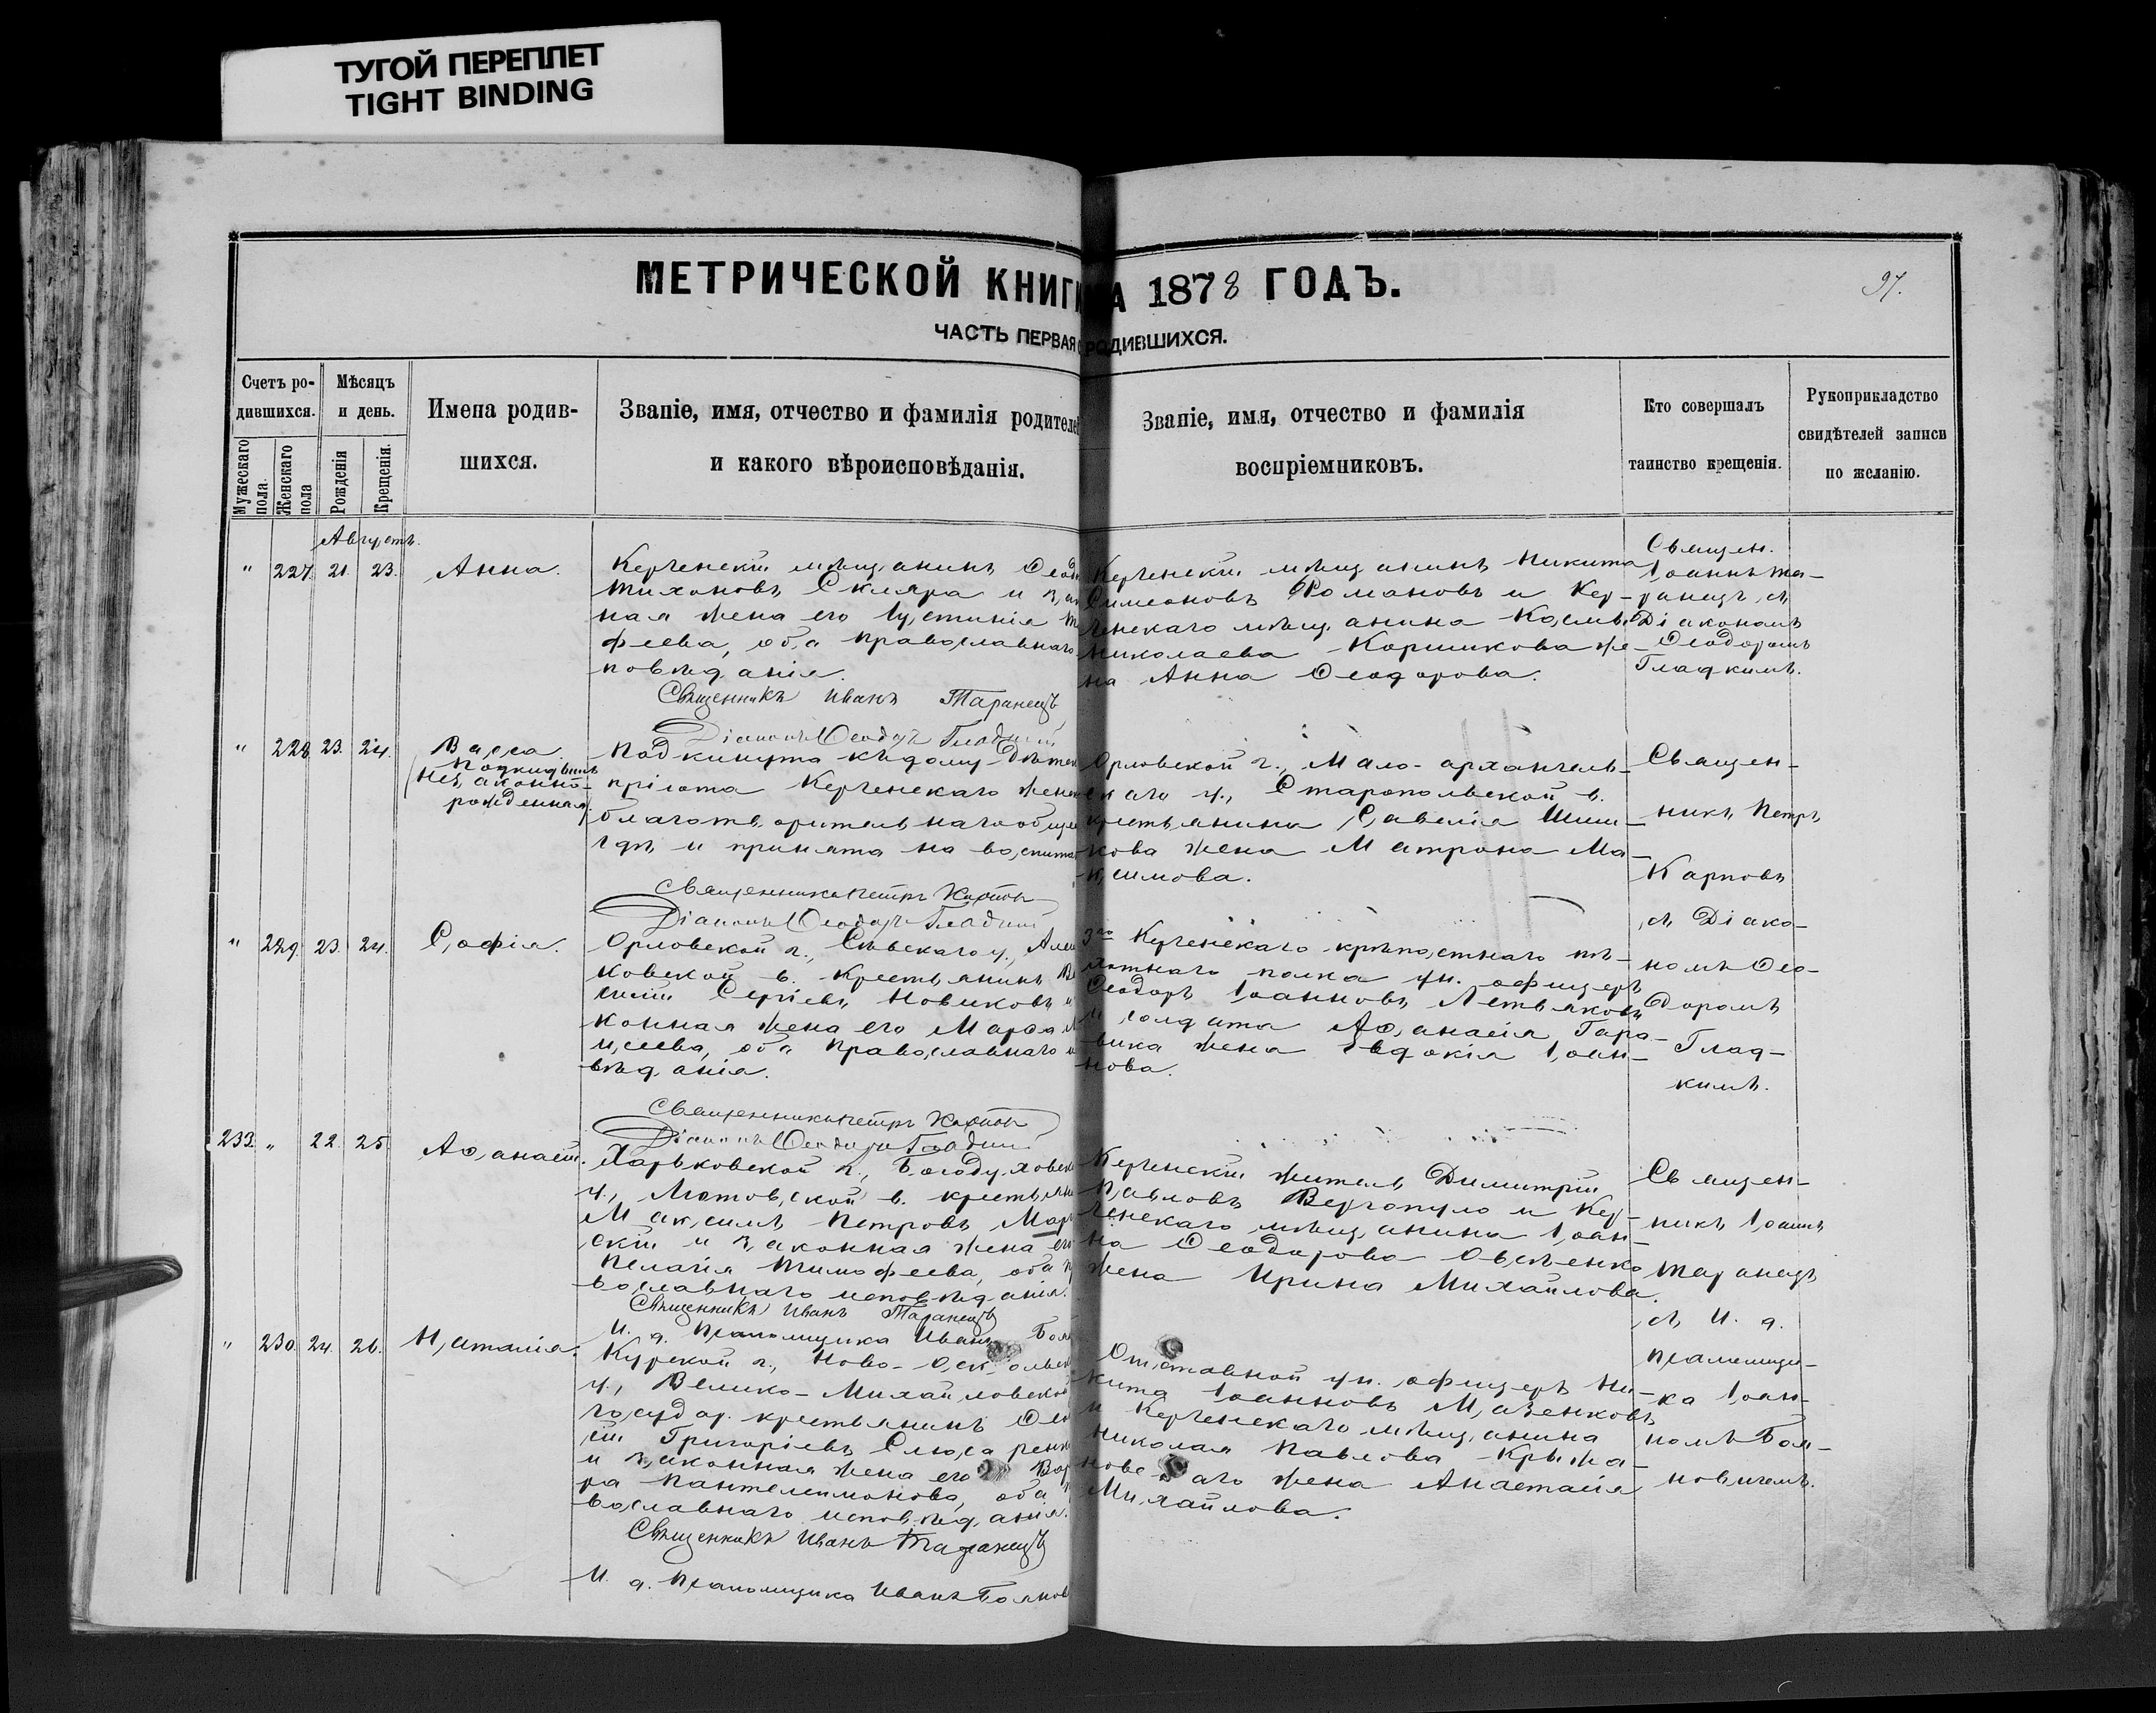 ТУГОЙ ПЕРЕПЛЕТ
TIGHT BINDING
МЕТРИЧЕСКОЙ КНИГИ
А 1878 ГОДЪ.
97.
ЧАСТЬ ПЕРВАЯ О
РОДИВШИХСЯ.
Счетъ ро-
дившихся.
Мужескаго пола.
Женскаго пола
Мѣсяцъ
и день.
Рожденія
Крещенія.
Имена родив-
шихся.
Званіе, имя, отчество и фамилія родителей
и какого вѣроисповѣданія.
Званіе, имя, отчество и фамилія
воспріемниковъ.
Кто совершалъ
таинство крещенія.
Рукоприкладство
свидѣтелей записи
по желанію.
Августъ.
" 227. 21. 23. Анна.
Керченскій мѣщанинъ Ѳеод
Тихоновъ Скляра и зак
ная жена его Іустинія Т
феева, оба православнаго
повѣданія.
Священникъ Иванъ Таранецъ
Діаконъ Ѳеодоръ Гладкий
Керченскій мѣщанинъ Никита
Симеоновъ Романовъ и Кер-
ченскаго мѣщанина Космы
Николаева Коршикова же-
на Анна Ѳеодорова.
Священ.
Іоаннъ Та-
ранецъ съ
Діакономъ
Ѳеодоромъ
Гладкимъ.
" 228 23. 24. Васса
подкидышъ
(незаконно-
рожденная)
Подкинута къ дому Дѣтск
пріюта Керченскаго женск
благотворительнаго общес
гдѣ и принята на воспита
Священникъ Петръ Карповъ
Діаконъ Ѳеодоръ Гладкий
Орловской г., Мало-архангель-
скаго у., Старопольской в.
крестьянина Савелія Шиш-
кова жена Матрона Ма-
ксимова.
Священ-
никъ Петръ
Карповъ
съ Діако-
номъ Ѳео-
доромъ
Глад-
кимъ.
" 229. 23. 24. Софія.
Орловской г., Сѣвскаго у., Алеш
ковской в. крестьянинъ Ва
силій Сергіевъ Новиковъ и
конная жена его Марѳа М
исеева, оба православнаго и
вѣданія.
Священникъ Петръ Карповъ
Діаконъ Ѳеодоръ Гладкий
3го Керченскаго крѣпостнаго пѣ-
хотнаго полка ун. офицеръ
Ѳеодоръ Іоанновъ Летьяковъ
и солдата Аѳанасія Гара-
вика жена Евдокія Іоан-
нова.
233. " 22. 25. Аѳанасій.
Харьковской г., Богодуховск
у., Мотовской в. крестьянин
Максимъ Петровъ Мар
скій и законная жена его
Пелагія Тимофеева, оба п
вославнаго исповѣданія.
Священникъ Иванъ Таранецъ
И. д. псаломщика Иванъ Боя
Керченскій житель Димитрій
Павловъ Вергопуло и Кер-
ченскаго мѣщанина Іоан-
на Ѳеодорова Овсѣенко
жена Ирина Михайлова.
Священ-
никъ Іоаннъ
Таранецъ
съ И. д.
псаломщи-
ка Іоан-
номъ Боя-
новичемъ.
" 230. 24. 26. Наталія.
Курской г., Ново-Оскольск
у., Велико-Михайловской
государ. крестьянинъ Ѳео
сій Григоріевъ Слюсаренко
и законная жена его Вар
ра Пантелеимонова, оба
вославнаго исповѣданія.
Священникъ Иванъ Таранецъ
И. д. Псаломщика Иванъ Боянов
Отставной ун. офицеръ Ни-
кита Іоанновъ Мазенковъ
и Керченскаго мѣщанина
Николая Павлова Крыжа-
новскаго жена Анастасія
Михайлова.